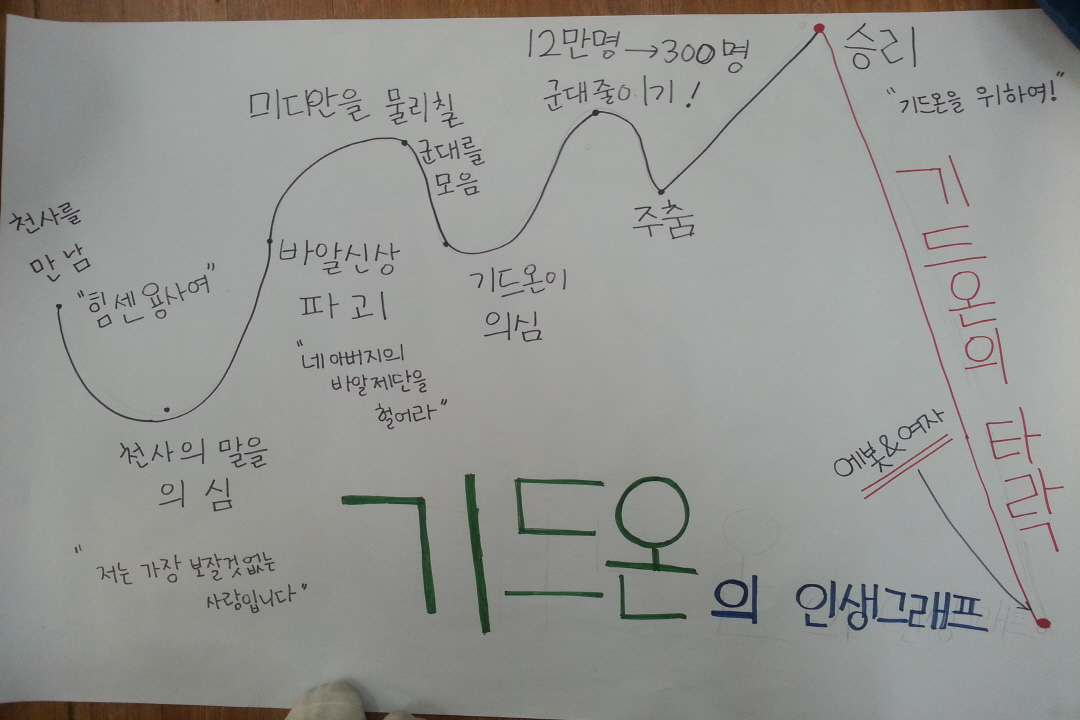 천사를
만남
"힘센 용사여"
천사의 말을
의심
"저는 가장 보잘것없는
사람입니다"
바알신상
파괴
"네 아버지의
바알제단을
헐어라"
미디안을 물리칠
군대를
모음
기드온이
의심
12만명→300명
군대줄이기!
주춤
승리
"기드온을 위하여!"
기드온의 타락
에봇&여자
기드온의 인생그래프